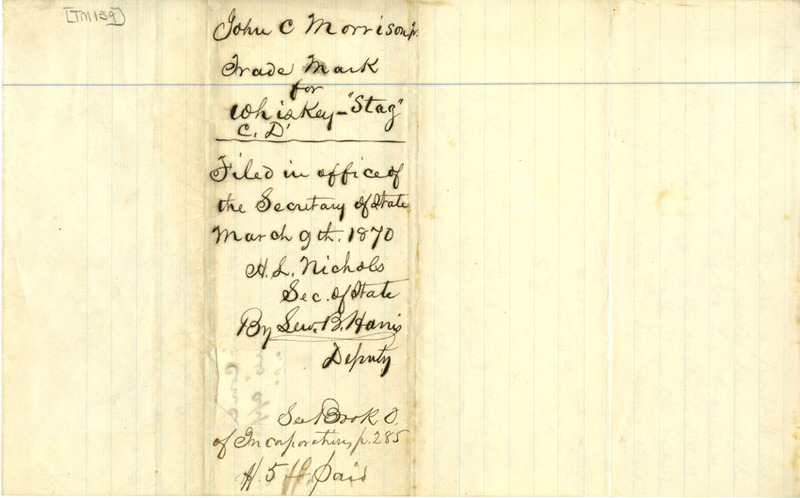 [TM159]
John C Morrison Jr.
Trade Mark
for
Whiskey-"Stag"
C. D.
Filed in office of
the Secretary of State
March 9th. 1870
H. L. Nichols
Sec. of State
By Lew. B. Harris
Deputy
See Book O.
of Incorporations p. 285
H. 5 paid